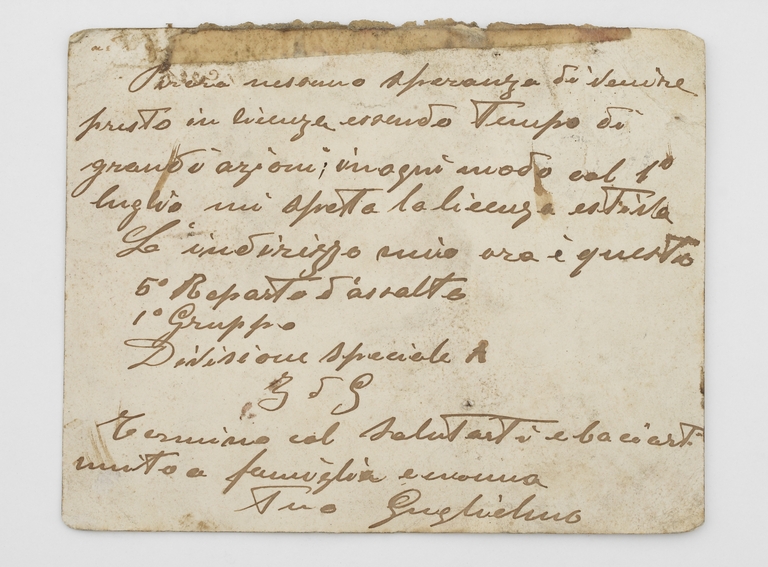 nessuna speranza di venire
presto in licenza essendo tempo di
grandi azioni; in ogni modo col 1º
luglio mi spetta la licenza estiva
L'indirizzo mio ora è questo
5º Reparto d'assalto
1º Gruppo
Divisione speciale A
Z d G
Termino col salutarti e baciarti
unito a famiglia e nonna
Tuo Guglielmo